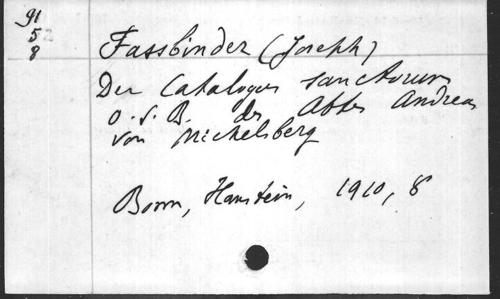 91
52
8
Fassbinder (Joseph)
Der Catalogus sanctorum
O.S.B. des Abtes Andreas
von Michelsberg
Bonn, Hanstein, 1910, 8